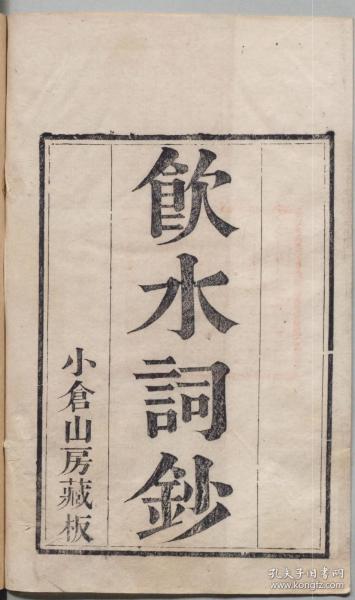 飮水詞鈔
小倉山房藏板
孔夫子旧书网
www.kongfz.com